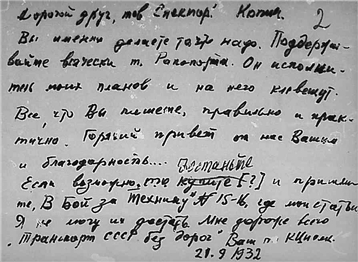 Дорогой друг, тов. Спектор! Копия. 2
Вы именно делаете то что надо. Поддержи-
вайте всячески т. Рапопорта. Он исполни-
тель моих планов и на него клевещут.
Все, что Вы пишете, правильно и прак-
тично. Горячий привет от нас Вашим
и благодарность....
достаньте
Если возможно, то купите [?] и пришли-
те, "В Бой за Технику" № 15-16, где мои статьи
Я не могу их достать. Мне дороже всего
"Транспорт СССР без дорог" Ваш п. К.Циолк.
21.9 1932